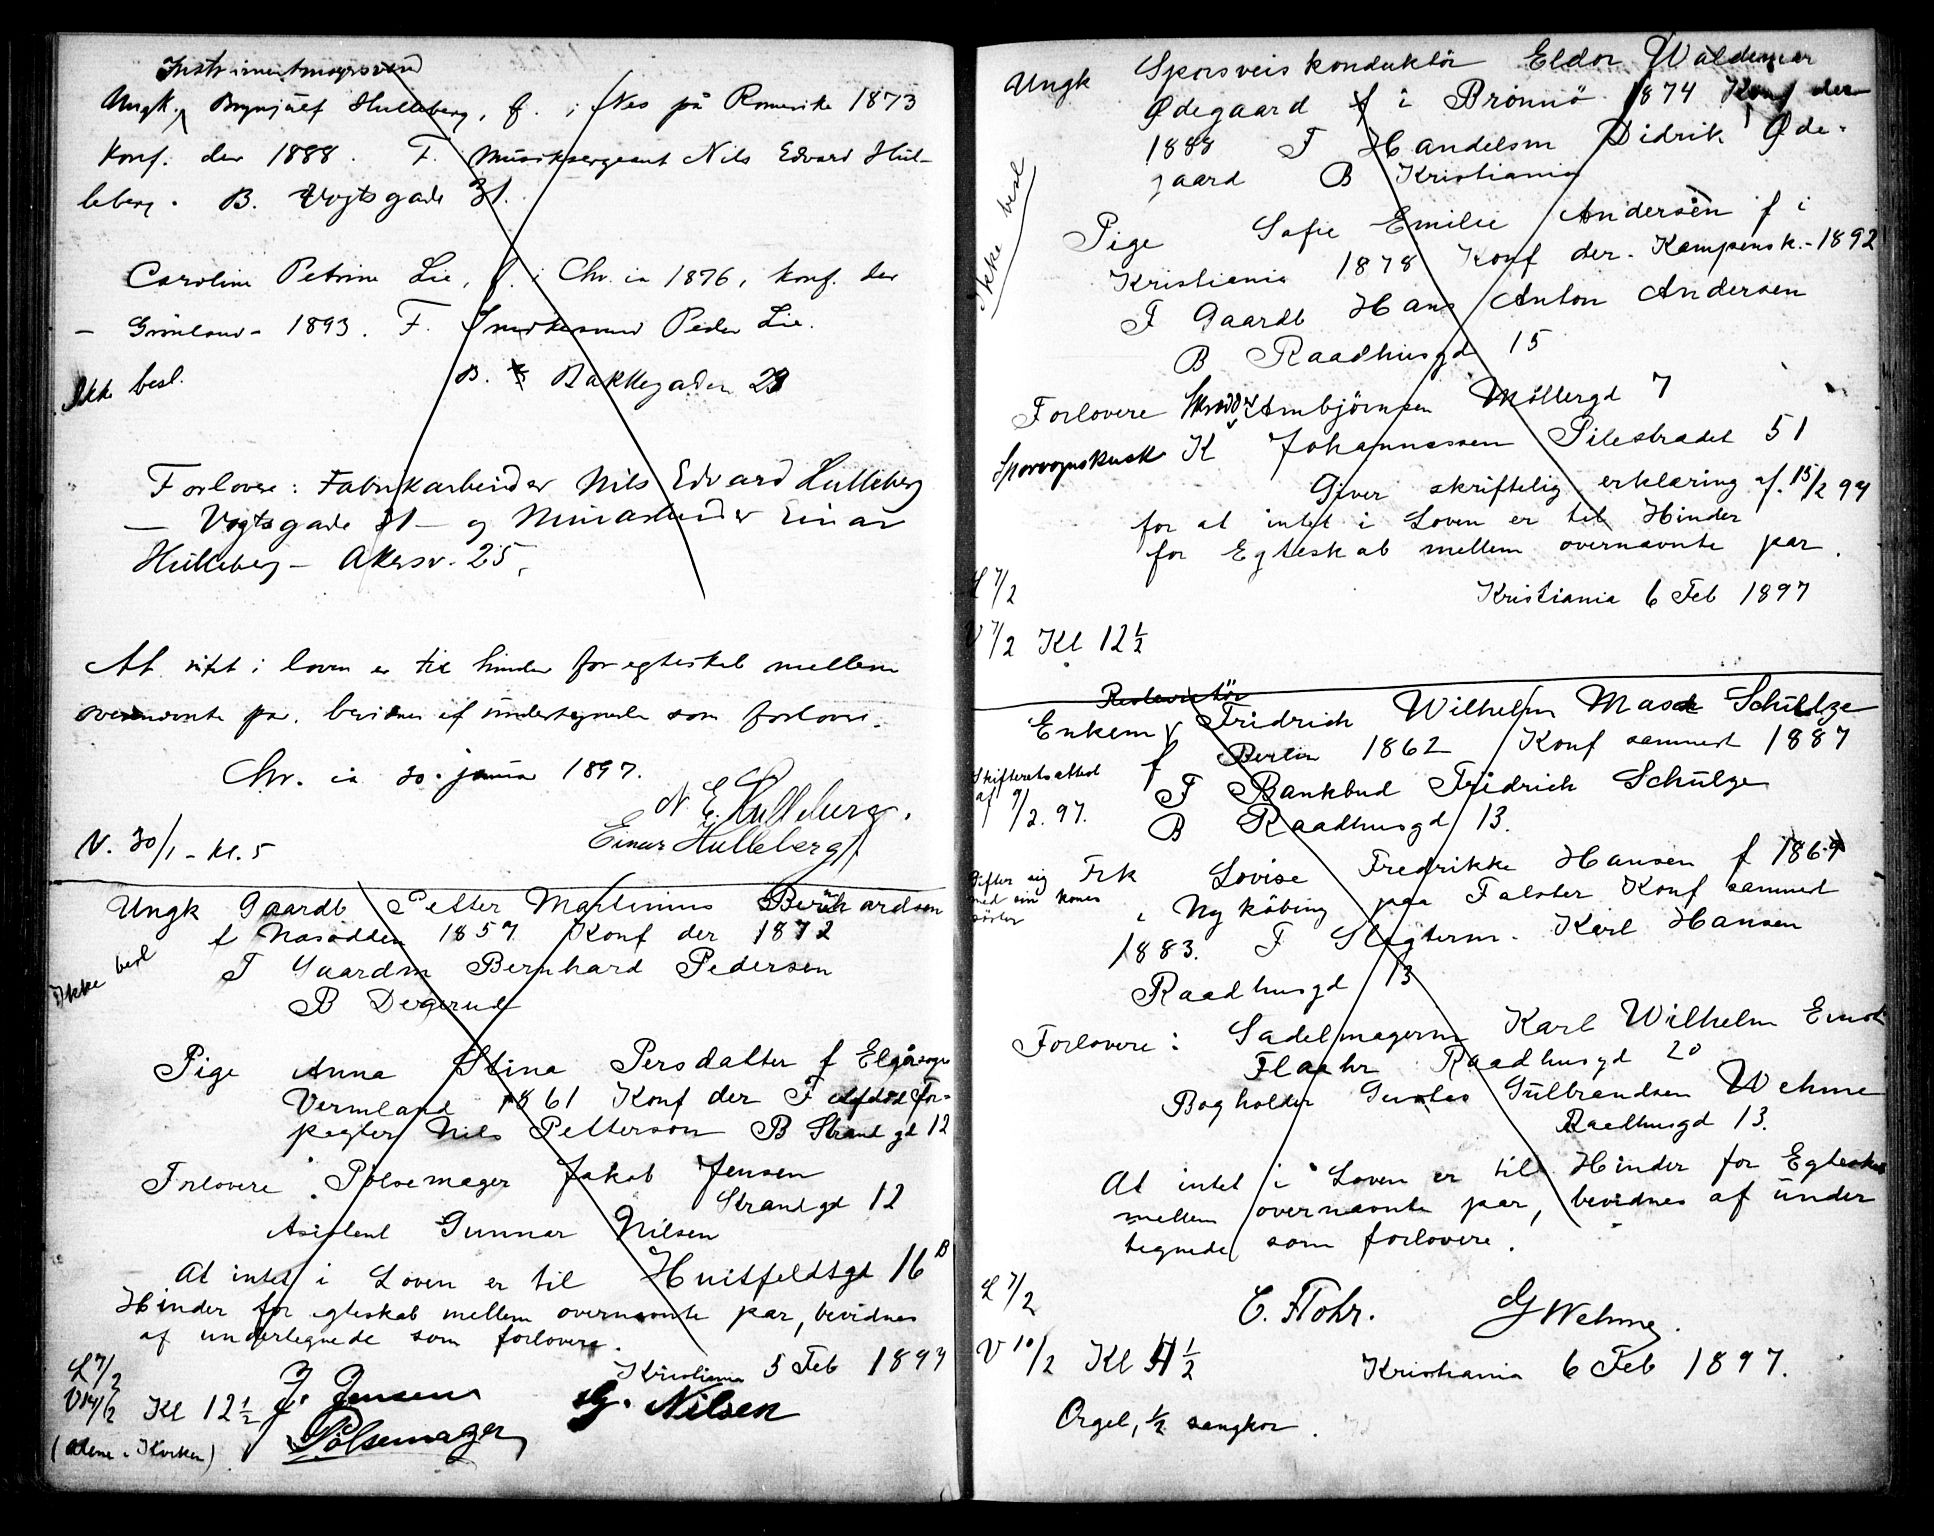 Instrumentmagersvend
Ungk. Brynjulf Hulleberg, f. i Næs på Romerike 1873
konf. der 1888. F. Musiksergeant Nils Edvard Hul-
leberg. B. Vogtsgade 31.
Caroline Petrine Lie, f. i Chr.ia 1876, konf. der
- Grønland - 1893. F. Peder Lie.
Ikke besl.
B. Bakkegaden 23
Forlovere: Fabrikarbeider Nils Edvard Hulleberg
- Vogtsgade 31 - og Einar
Hulleberg - Akersv. 25.
At intet i loven er til hinder for egteskab mellem
overnævnte par bevidnes af undertegnede som forlovere.
Chr.ia 30. januar 1897.
N. E. Hulleberg.
Einar Hulleberg.
V. 30/1 - kl. 5
Ungk Gaardb Petter Martinius Bernhardsen
f Næsodden 1857 Konf der 1872
F Gaardm Bernhard Pedersen
Ikke besl
B Degerud
Pige Anna Stina Persdatter f
Vermland 1861 Konf der F For-
pagter Nils Petterson B Strandgd 12
Forlovere Pølsemager Jakob Jensen
Strandgd 12
Asistent Gunnar Nilsen
Huitfeldtgd 16 B
At intet i Loven er til
Hinder for egteskab mellem overnævnte par, bevidnes
af undertegnede som forlovere.
Kristiania 5 Feb 1897
L 7/2
V 14/2 Kl 12 1/2
J. Jensen
Pölsemager
G. Nilsen
(alene i Kirken)
Ungk Sporveiskonduktör Eldor Waldemar
Ødegaard f i Brönnö 1874 Konf der
1888 F Handelsm Didrik Øde-
gaard B Kristiania
Ikke besl
Pige Sofie Emilie Andersen f i
Kristiania 1878 Konf der. Kampensk. - 1892
F Gaardb Hans Anton Andersen
B Raadhusgd 15
Forlovere Skrædder Arnbjörnsen Möllergd 7
Sporvognskusk K Johannessen Pilestrædet 51
Giver skriftelig erklæring af. 15/2 97
for at intet i Loven er til Hinder
for Egteskab mellem overnævnte par.
L 7/2
Kristiania 6 Feb 1897
V 7/2 Kl 12 1/2
Enkem Fridrich Wilhelm Schultze
f Berlin 1862 Konf sammest 1887
Skifteretsattest
af 9/2. 97.
F Bankbud Fridrich Schulze
B Raadhusgd 13.
Gifter sig
med sin kones
søster
Frk Lovise Fredrikke Hansen f 1869
i Nykøbing paa Falster Konf sammest
1883. F Slagterm. Karl Hansen
Raadhusgd 13
Forlovere: Sadelmagerm Karl Wilhelm Ernst
Raadhusgd 20
Bogholder Gustav Gulbrandsen Wehme
Raadhusgd 13.
At intet i Loven er til Hinder for Egteskab
mellem overnævnte par, bevidnes af under
tegnede som forlovere.
L 7/2
C. Flohr. G Wehme.
V 10/2 Kl 1/2
Kristiania 6 Feb 1897.
Orgel, 1/2 sangkor.